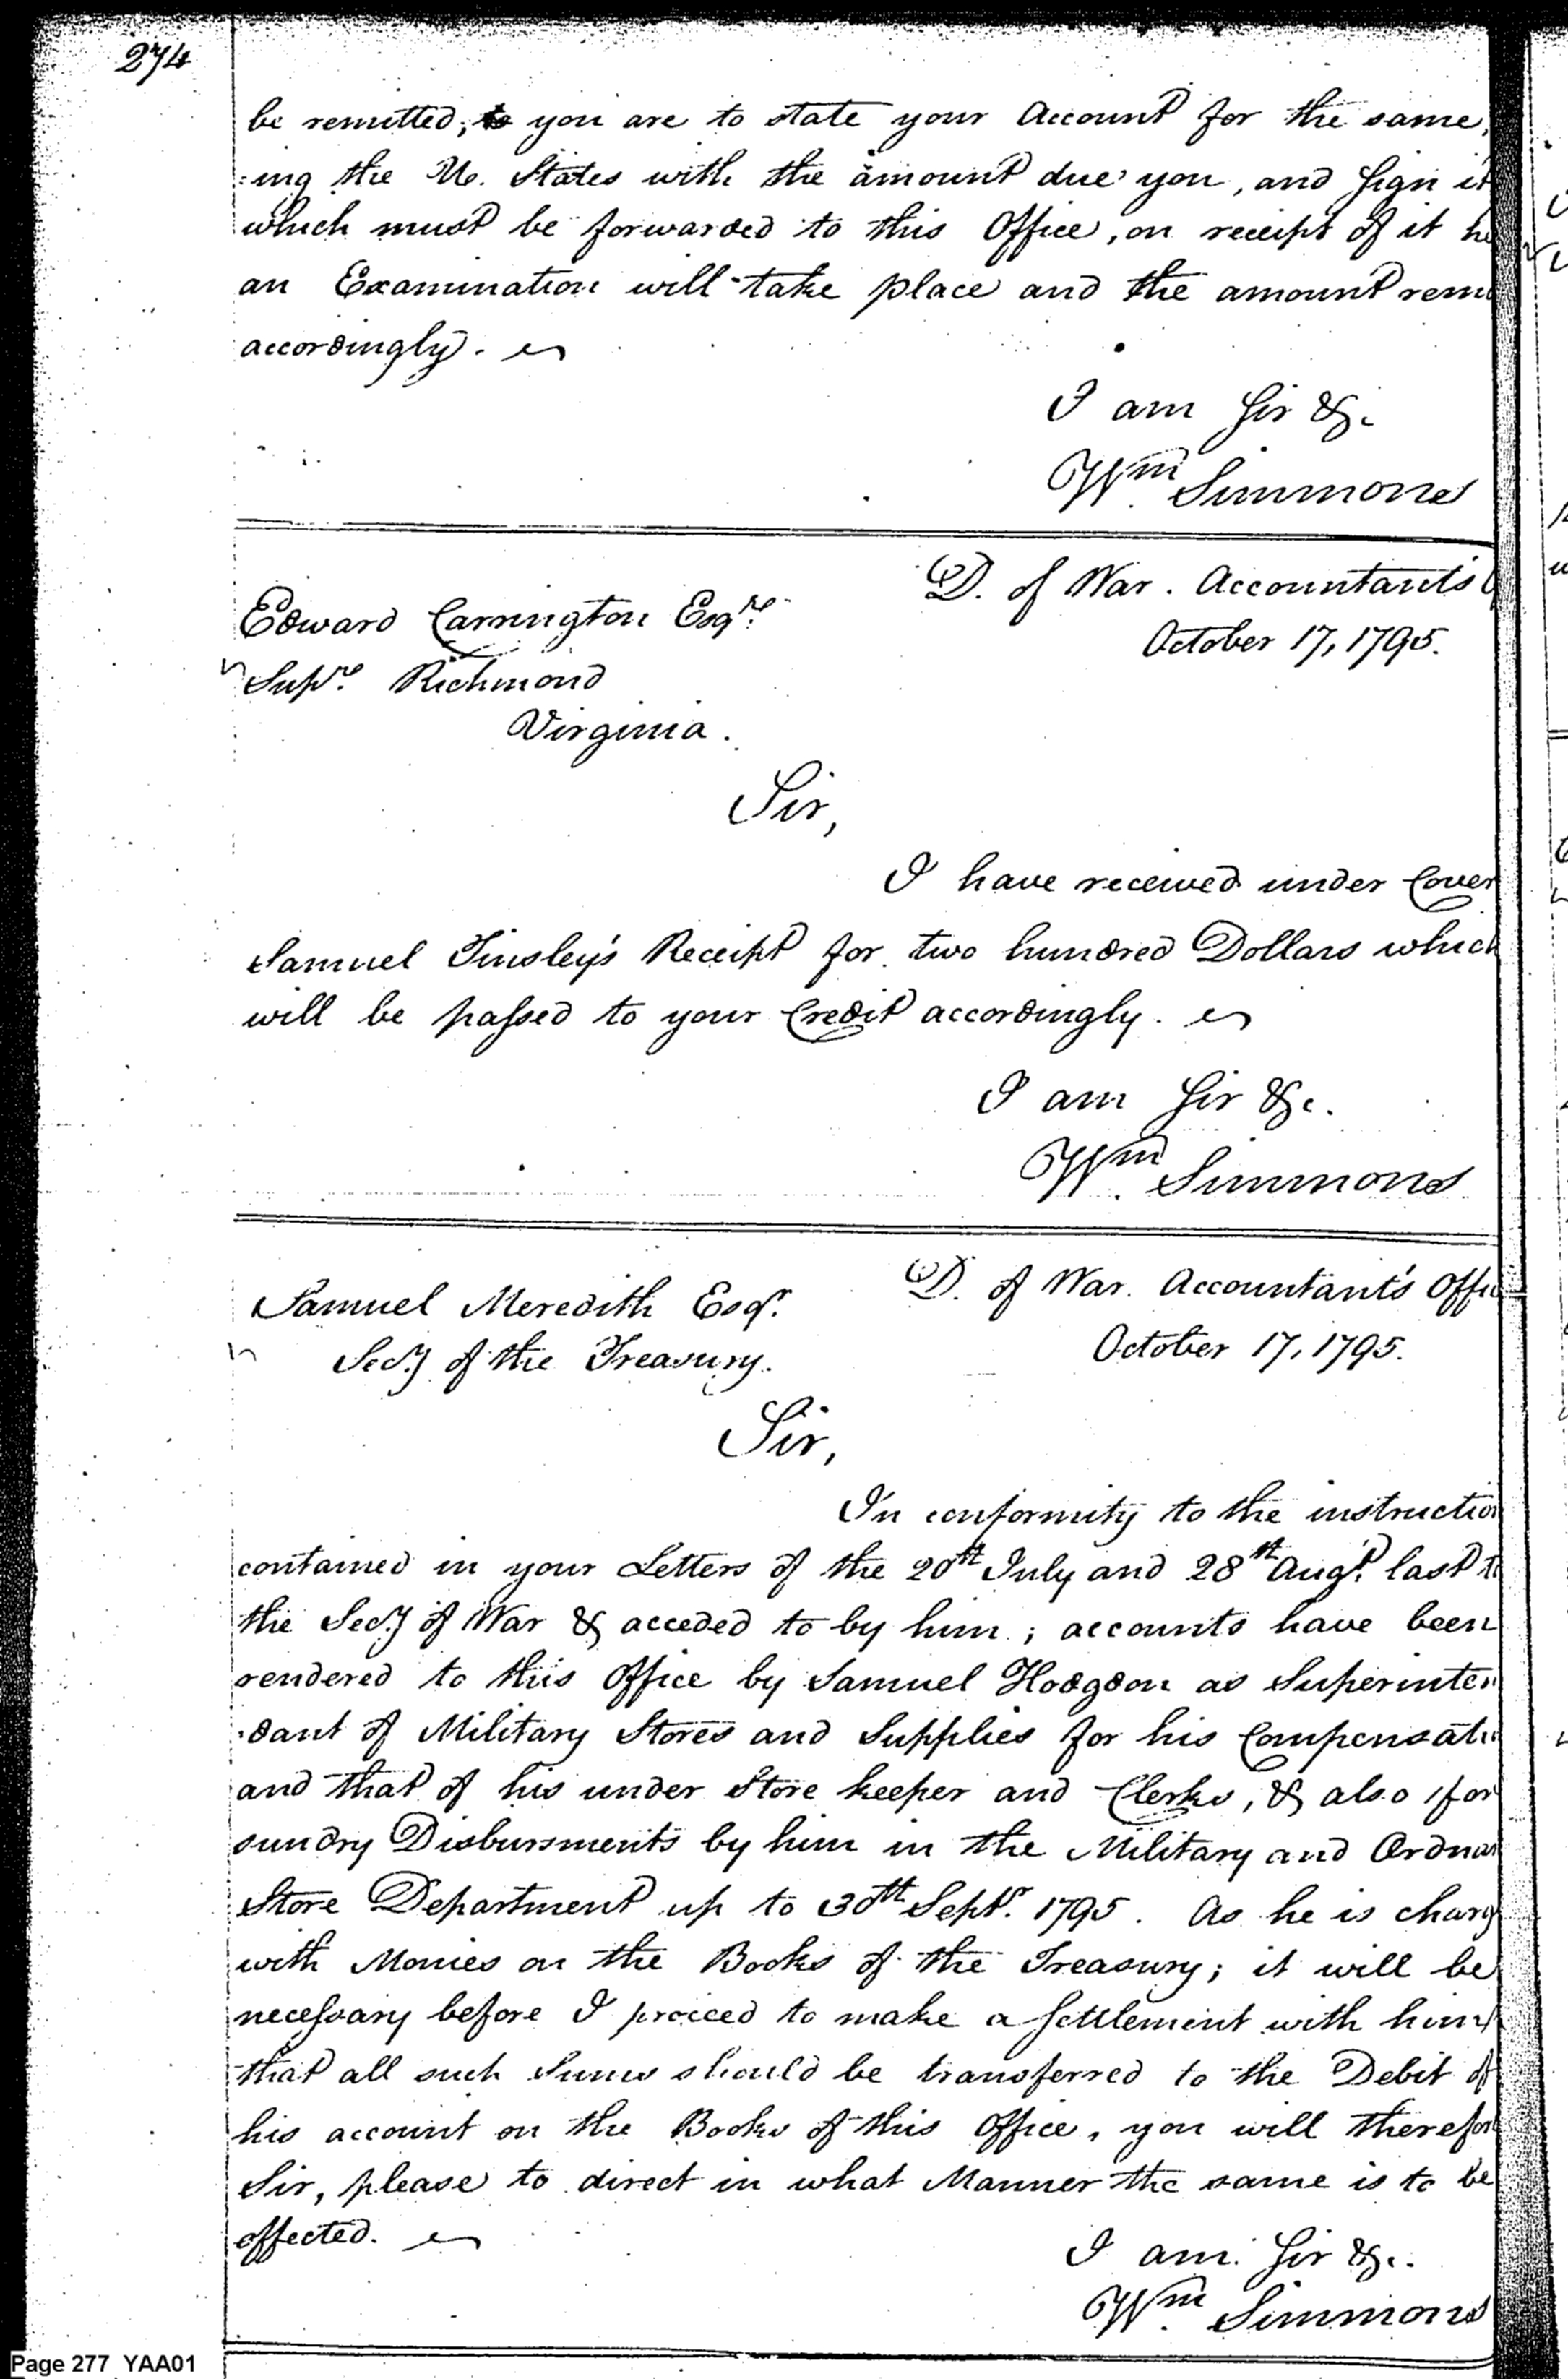 274
be remitted, to you are to state your Account for the same,
:ing the U. States with the amount due you, and sign it
which must be forwarded to this Office, on receipt of it
an Examination will take place and the amount rem
accordingly.
I am Sir &c.
Wm Simmons
D. of War. Accountants
Edward Carrington Esqre.
October 17, 1795.
Supre. Richmond
Virginia.
Sir,
I have received under Cover
Samuel Tinsley's Receipt for two hundred Dollars which
will be passed to your Credit accordingly.
I am Sir &c.
Wm Simmons
D. of War. Accountant's Offi
Samuel Meredith Esqr.
Secy of the Treasury.
October 17, 1795.
Sir,
In conformity to the instruction
contained in your Letters of the 20th July and 28th Augt. last
the Secy of War & acceded to by him; accounts have been
rendered to this Office by Samuel Hodgdon as Superinten
dant of Military Stores and Supplies for his Compensati
and that of his under Store keeper and Clerks, & also for
sundry Disbursments by him in the Military and Ordnan
Store Department up to 30th Sept. 1795. As he is charg
with Monies on the Books of the Treasury; it will be
necessary before I proceed to make a settlement with him
that all such Sums should be transferred to the Debit of
his account on the Books of this Office, you will therefor
Sir, please to direct in what Manner the same is to be
effected.
I am Sir &c.
Wm Simmons
Page 277 YAA01